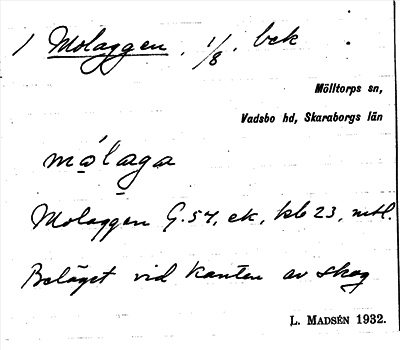 1 Molaggen. 1/8. bek
Mölltorps sn,
Vadsbo hd, Skaraborgs län
mọ́laga
Molaggen G. 54, ek, kbl 23, mtl.
Beläget vid kanten av skog
L. MADSÉN 1932.